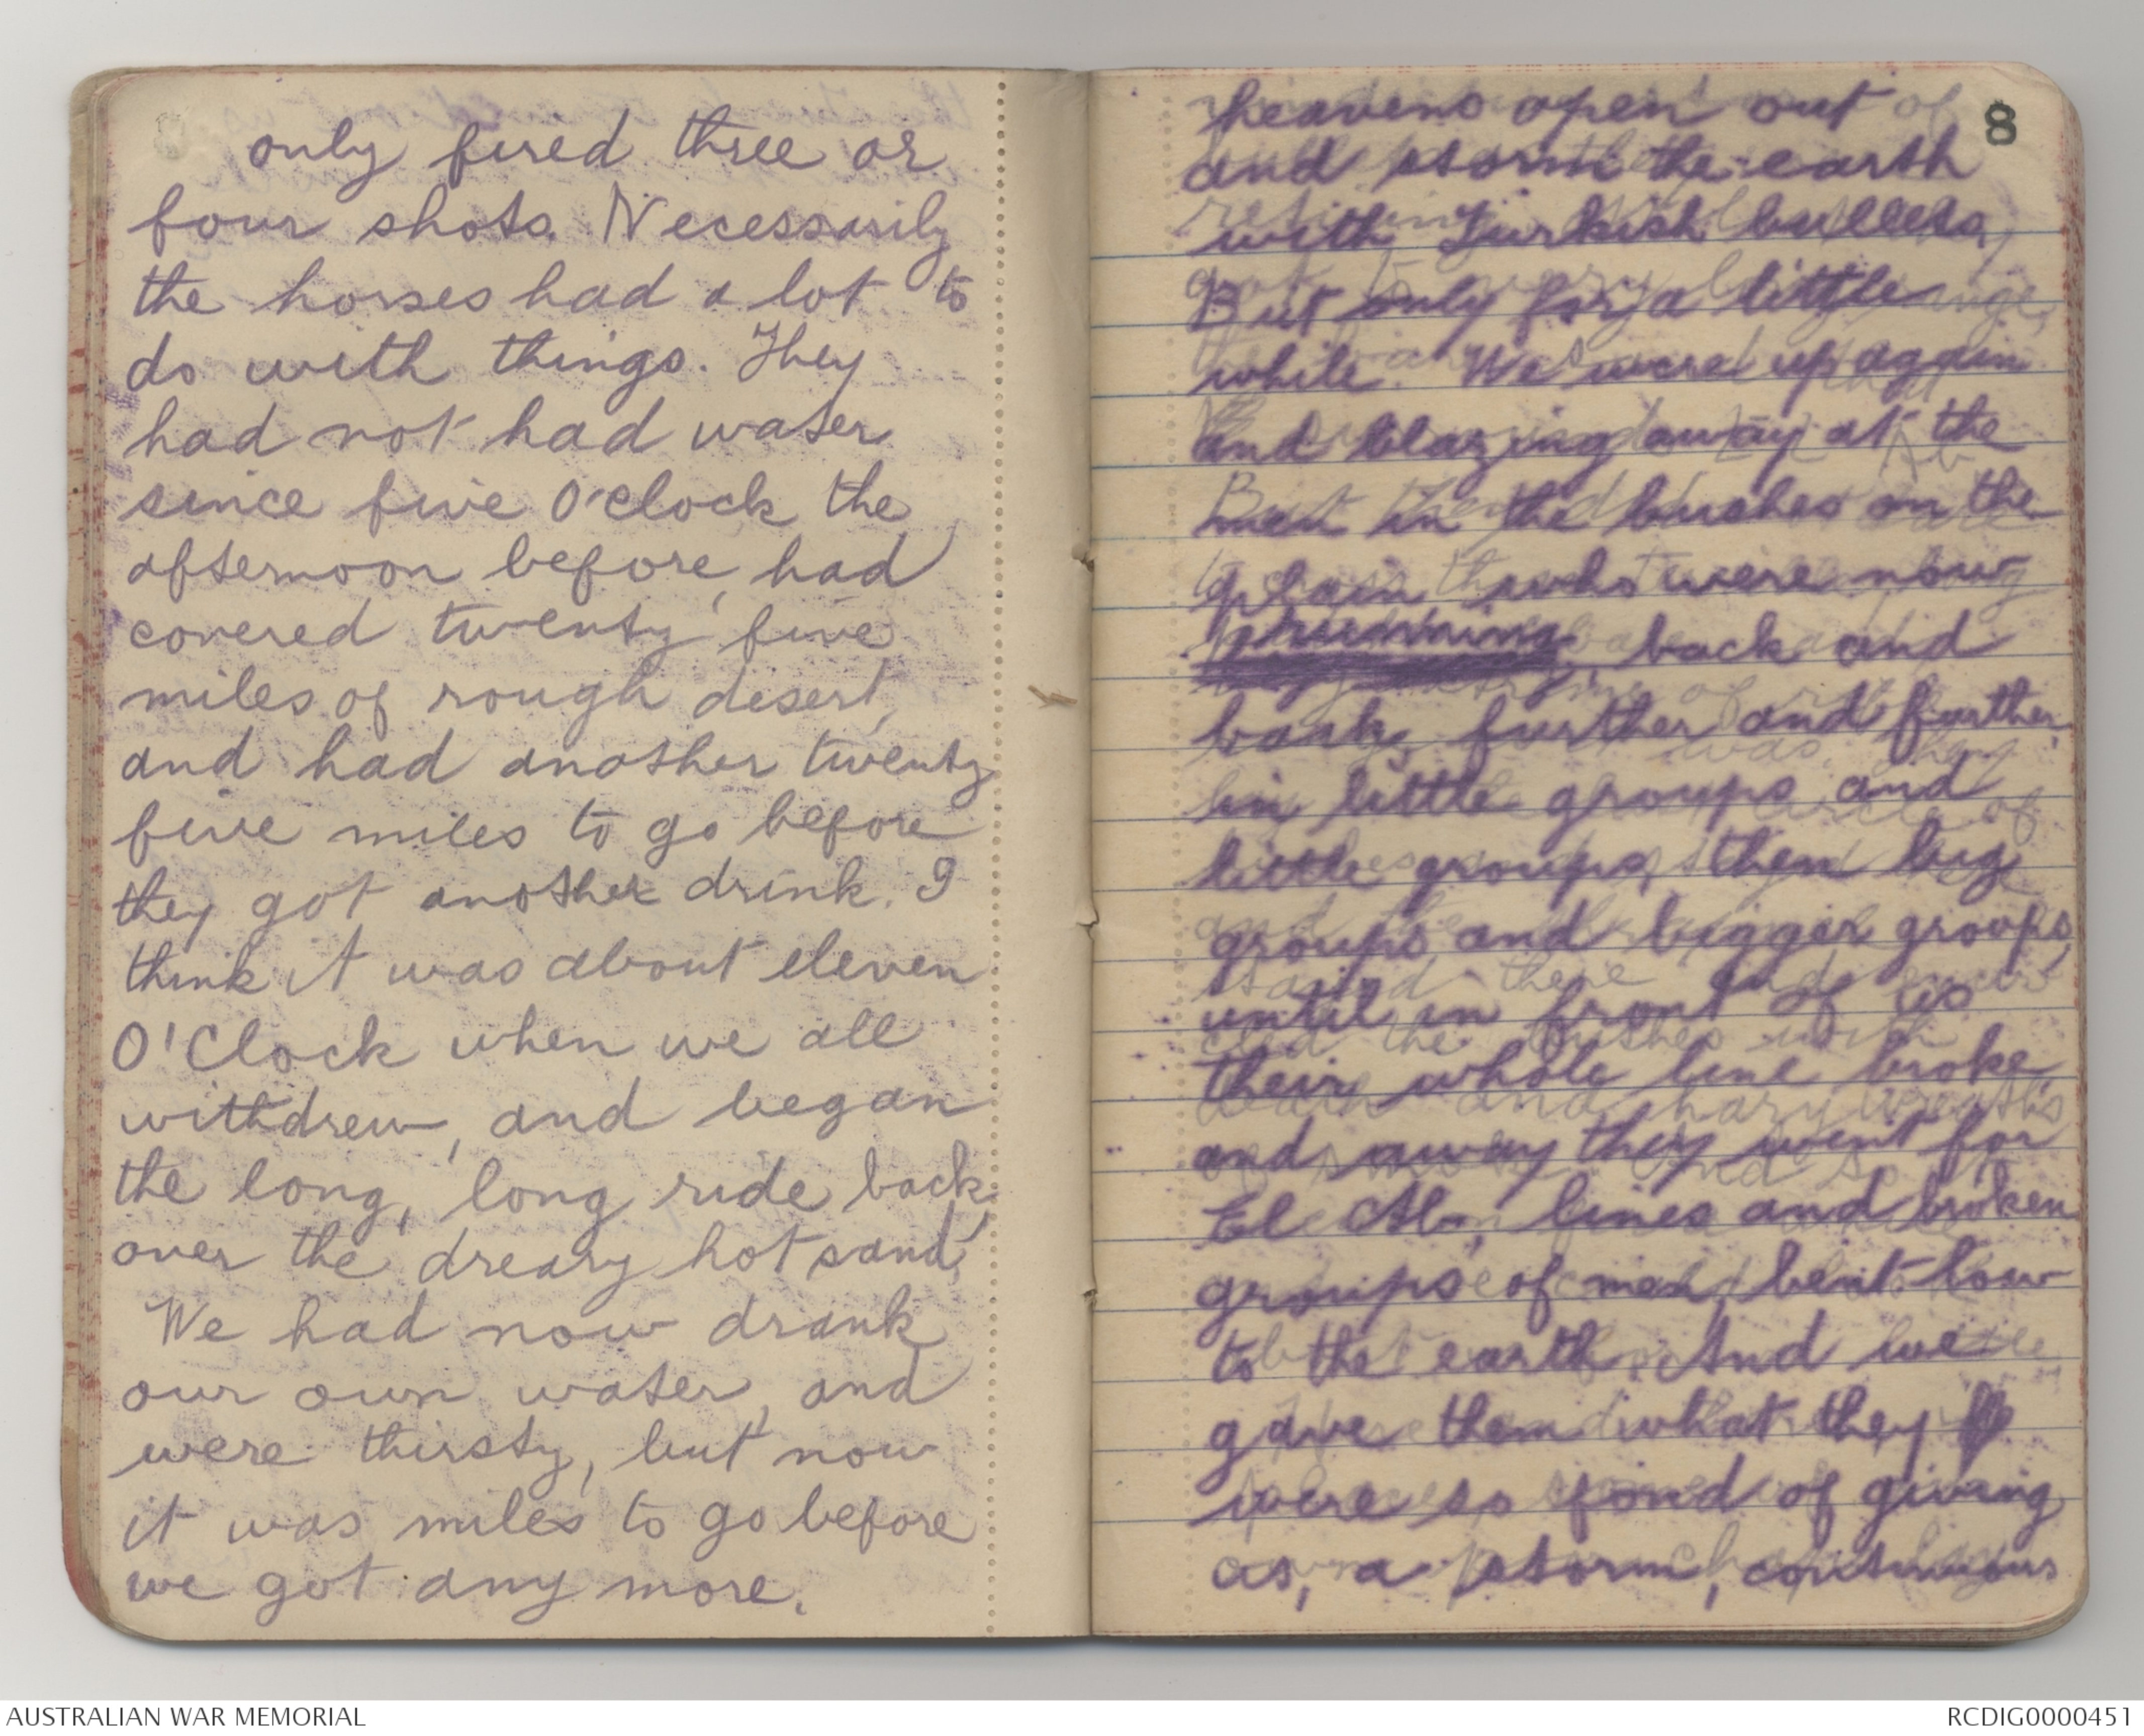 only fired three or
four shots. Necessarily
the horses had a lot to
do with things. They
had not had water
since five O'clock the
afternoon before, had
covered twenty five
miles of rough desert,
and had another twenty
five miles to go before
they got another drink. I
think it was about eleven
O'Clock when we all
withdrew, and began
the long, long ride back,
over the dreary hot sand,
We had now drank
our own water, and
were thirsty, but now
it was miles to go before
we got any more.
8
heavens open out
and storm the earth
with Turkish bullets,
But only for a little
while. We were up again
and blazing away at the
men in the bushes on the
plain who were now
running back and
back, further and further
in little groups and
little groups, then big
groups and bigger groups,
until in front of us
their whole line broke,
and away they went for
El Abn, lines and broken
groups of men, bent low
to the earth. And we
gave them what they
were so fond of giving
us, a storm, continuous
AUSTRALIAN WAR MEMORIAL
RCDIG0000451